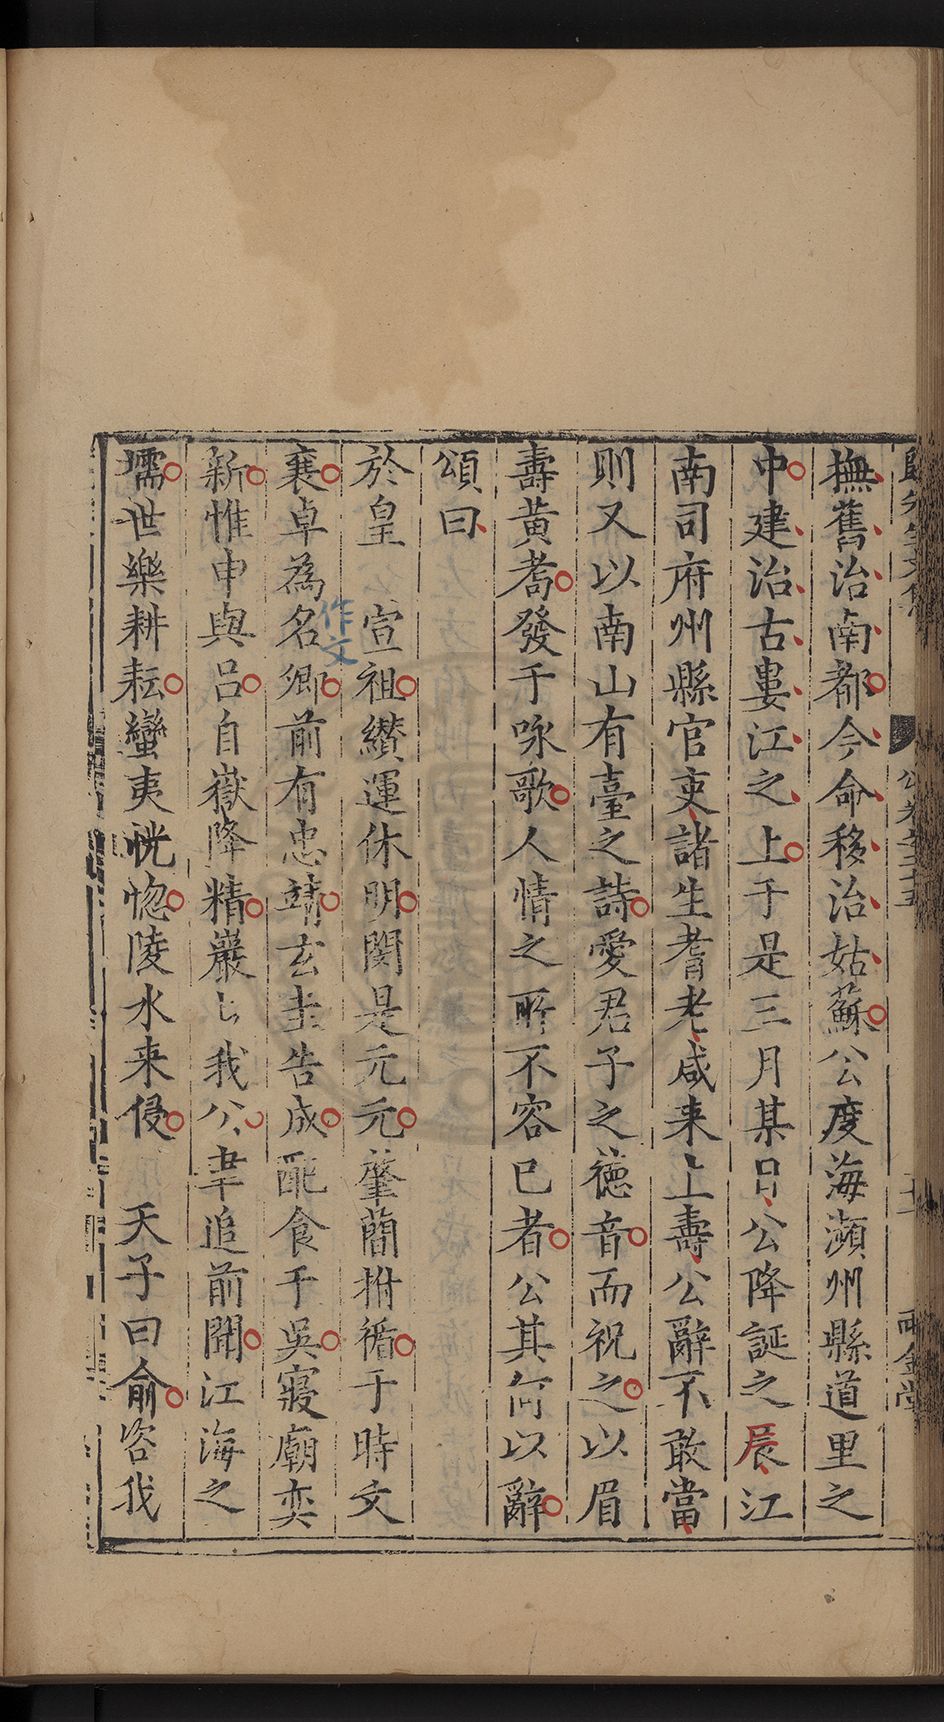 歸先生文集 公卷之二十五 十一 雨金堂
撫舊治南都今命移治姑蘇公度海瀕州縣道里之
中建治古婁江之上于是三月某日公降誕之辰江
南司府州縣官吏諸生耆老咸来上壽公辭不敢當
則又以南山有臺之詩愛君子之德音而祝之以眉
壽黃耇發于咏歌人情之所不容已者公其何以辭
頌曰
於皇 宣祖纘運休明閔是元元肇蕳拊循于時文
襄卓為名卿前有忠靖玄圭告成配食于吳寢廟奕
作文
新惟申與呂自嶽降精巖〻我公聿追前聞江海之
壖世樂耕耘蠻夷恍惚陵水来侵 天子曰俞咨我